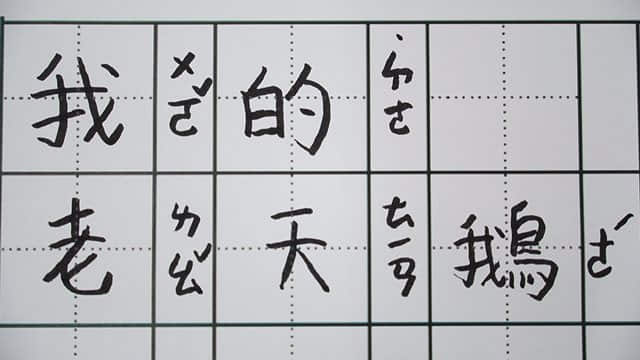 我ㄨㄛˇ的˙ㄉㄜ
老ㄌㄠˇ天ㄊㄧㄢ鵝ㄜˊ